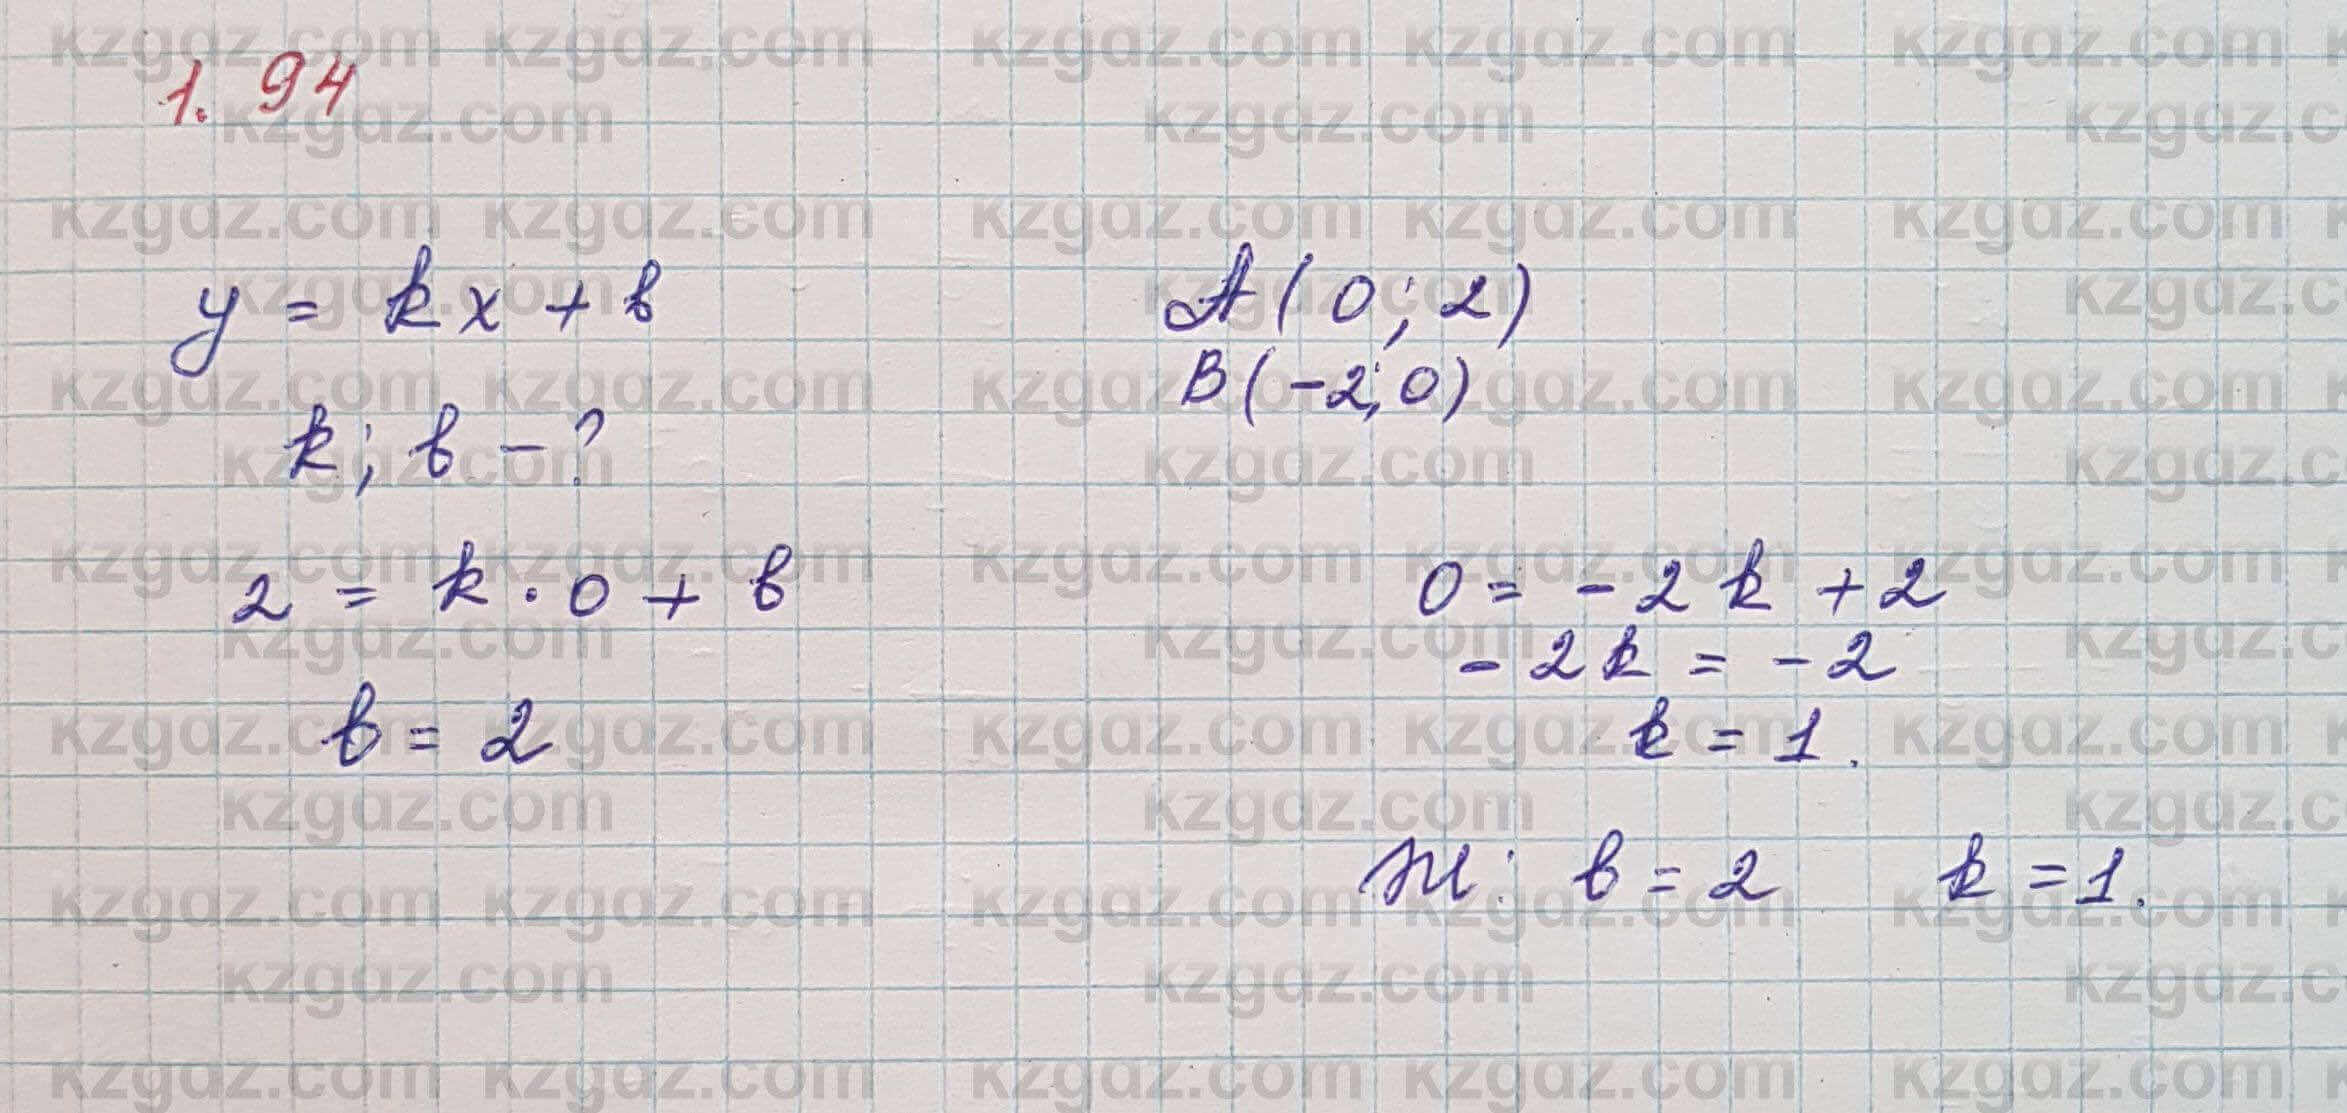 1.94
y = kx + b
A(0; 2)
B(-2; 0)
k; b - ?
2 = k · 0 + b
b = 2
0 = -2k + 2
-2k = -2
k = 1.
Ж: b = 2 k = 1.
kzgdz.com